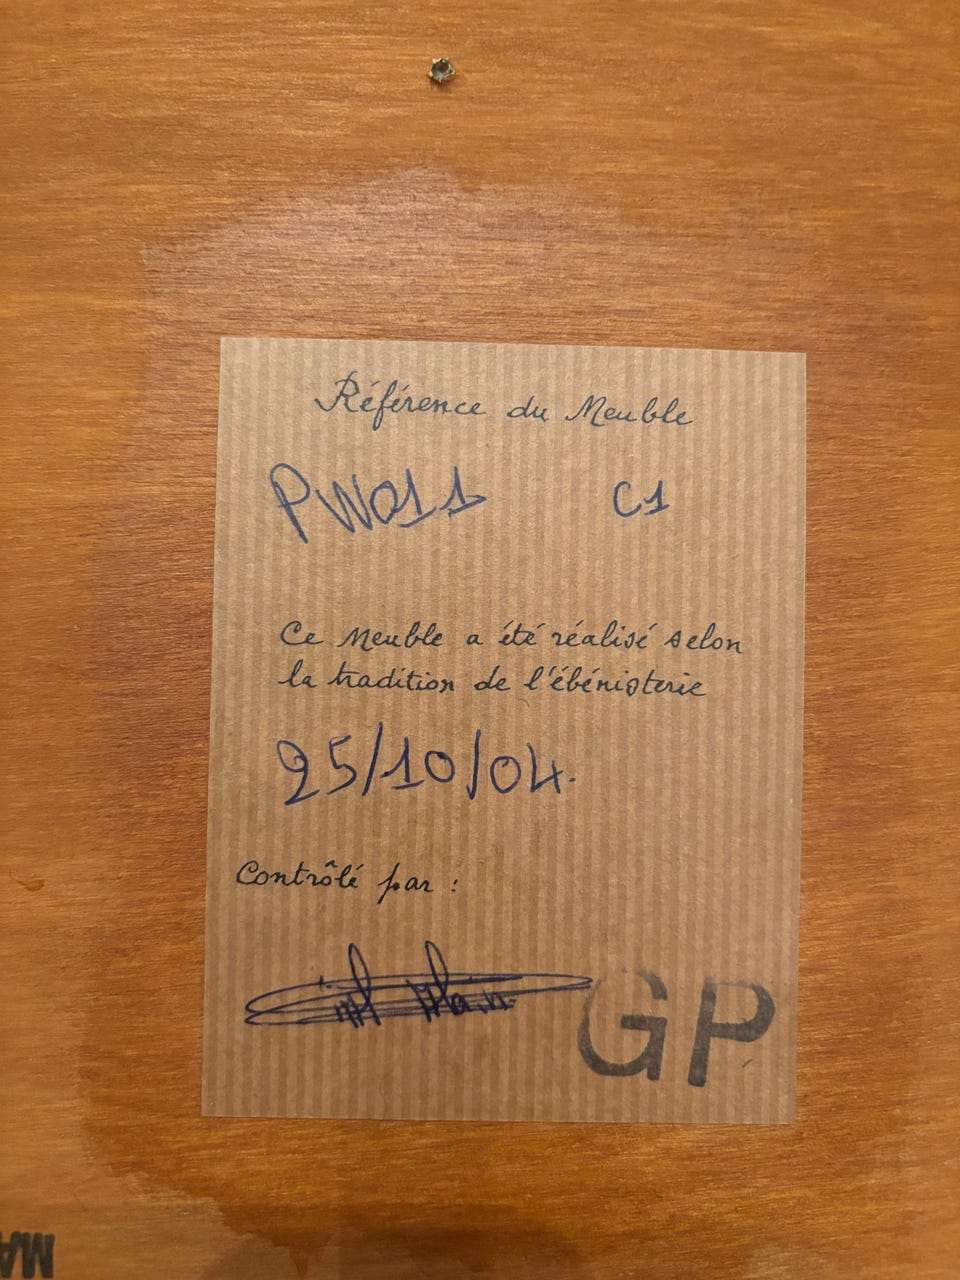 Référence du Meuble
PW011 C1
Ce Meuble a été réalisé selon
la tradition de l'ébénisterie
25/10/04.
Contrôlé par :
GP
MA